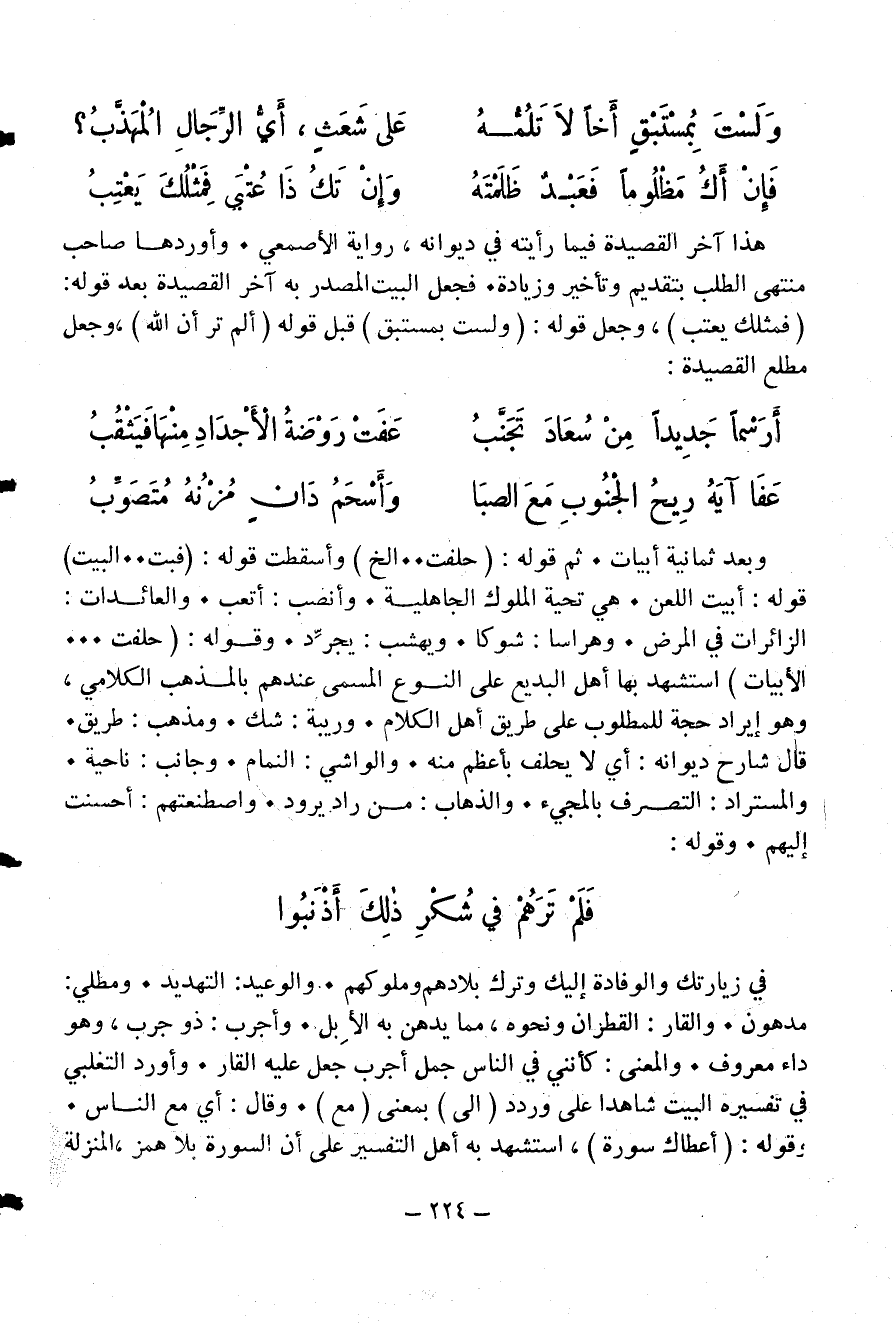 وَلَسْتَ بِمُسْتَبْقٍ أَخاً لاَ تَلُمُّــهُ عَلى شَعَثٍ ، أَيُّ الرِّجَالِ الْمُهَذَّبُ؟
فَإِنْ أَكُ مَظْلُوماً فَعَبْــدٌ ظَلَمْتَهُ وَإِنْ تَكُ ذَا عُتْبَى فَمِثْلُكَ يَعْتِبُ
هذا آخر القصيدة فيما رأيته في ديوانه ، رواية الأصمعي ٠ وأوردهــا صاحب
منتهى الطلب بتقديم وتأخير وزيادة٠ فجعل البيت المصدر به آخر القصيدة بعد قوله:
( فمثلك يعتب ) ، وجعل قوله : ( ولست بمستبق ) قبل قوله ( ألم تر أن الله ) ،وجعل
مطلع القصيدة :
أَرَسْماً جَدِيداً مِنْ سُعَادَ تَجَنَّبُ عَفَتْ رَوْضَةُ الْأَجْدَادِ مِنْهَا فَيَثْقُبُ
عَفَا آيَهُ رِيحُ الْجَنُوبِ مَعَ الصبَا وَأَسْحَمُ دَانٍ مُزْنُهُ مُتَصَوِّبُ
وبعد ثمانية أبيات ٠ ثم قوله : ( حلفت٠٠الخ ) وأسقطت قوله : (فبت٠٠البيت)
قوله : أبيت اللعن ٠ هي تحية الملوك الجاهليــة ٠ وأنصب : أتعب ٠ والعائــدات :
الزائرات في المرض ٠ وهراسا : شوكا ٠ ويهشب : يجرّد ٠ وقــوله : ( حلفت ٠٠٠
الأبيات ) استشهد بها أهل البديع على النــوع المسمى عندهم بالمــذهب الكلامي ،
وهو إيراد حجة للمطلوب على طريق أهل الكلام ٠ وريبة : شك ٠ ومذهب : طريق٠
قال شارح ديوانه : أي لا يحلف بأعظم منه ٠ والواشي : النمام ٠ وجانب : ناحية ٠
والمستراد : التصــرف بالمجيء ٠ والذهاب : مــن راد يرود ٠ واصطنعتهم : أحسنت
إليهم ٠ وقوله :
فَلَمْ تَرَهُمْ فِي شُكْرِ ذٰلِكَ أَذْنَبُوا
في زيارتك والوفادة إليك وترك بلادهم وملوكهم ٠ والوعيد: التهديد ٠ ومطلي:
مدهون ٠ والقار : القطران ونحوه ، مما يدهن به الأبل ٠ وأجرب : ذو جرب ، وهو
داء معروف ٠ والمعنى : كأنني في الناس جمل أجرب جعل عليه القار ٠ وأورد التغلبي
في تفسيره البيت شاهدا على وردد ( الى ) بمعنى ( مع ) ٠ وقال : أي مع النــاس ٠
وقوله : ( أعطاك سورة ) ، استشهد به أهل التفسير على أن السورة بلا همز ،المنزلة
– ٢٢٤ –